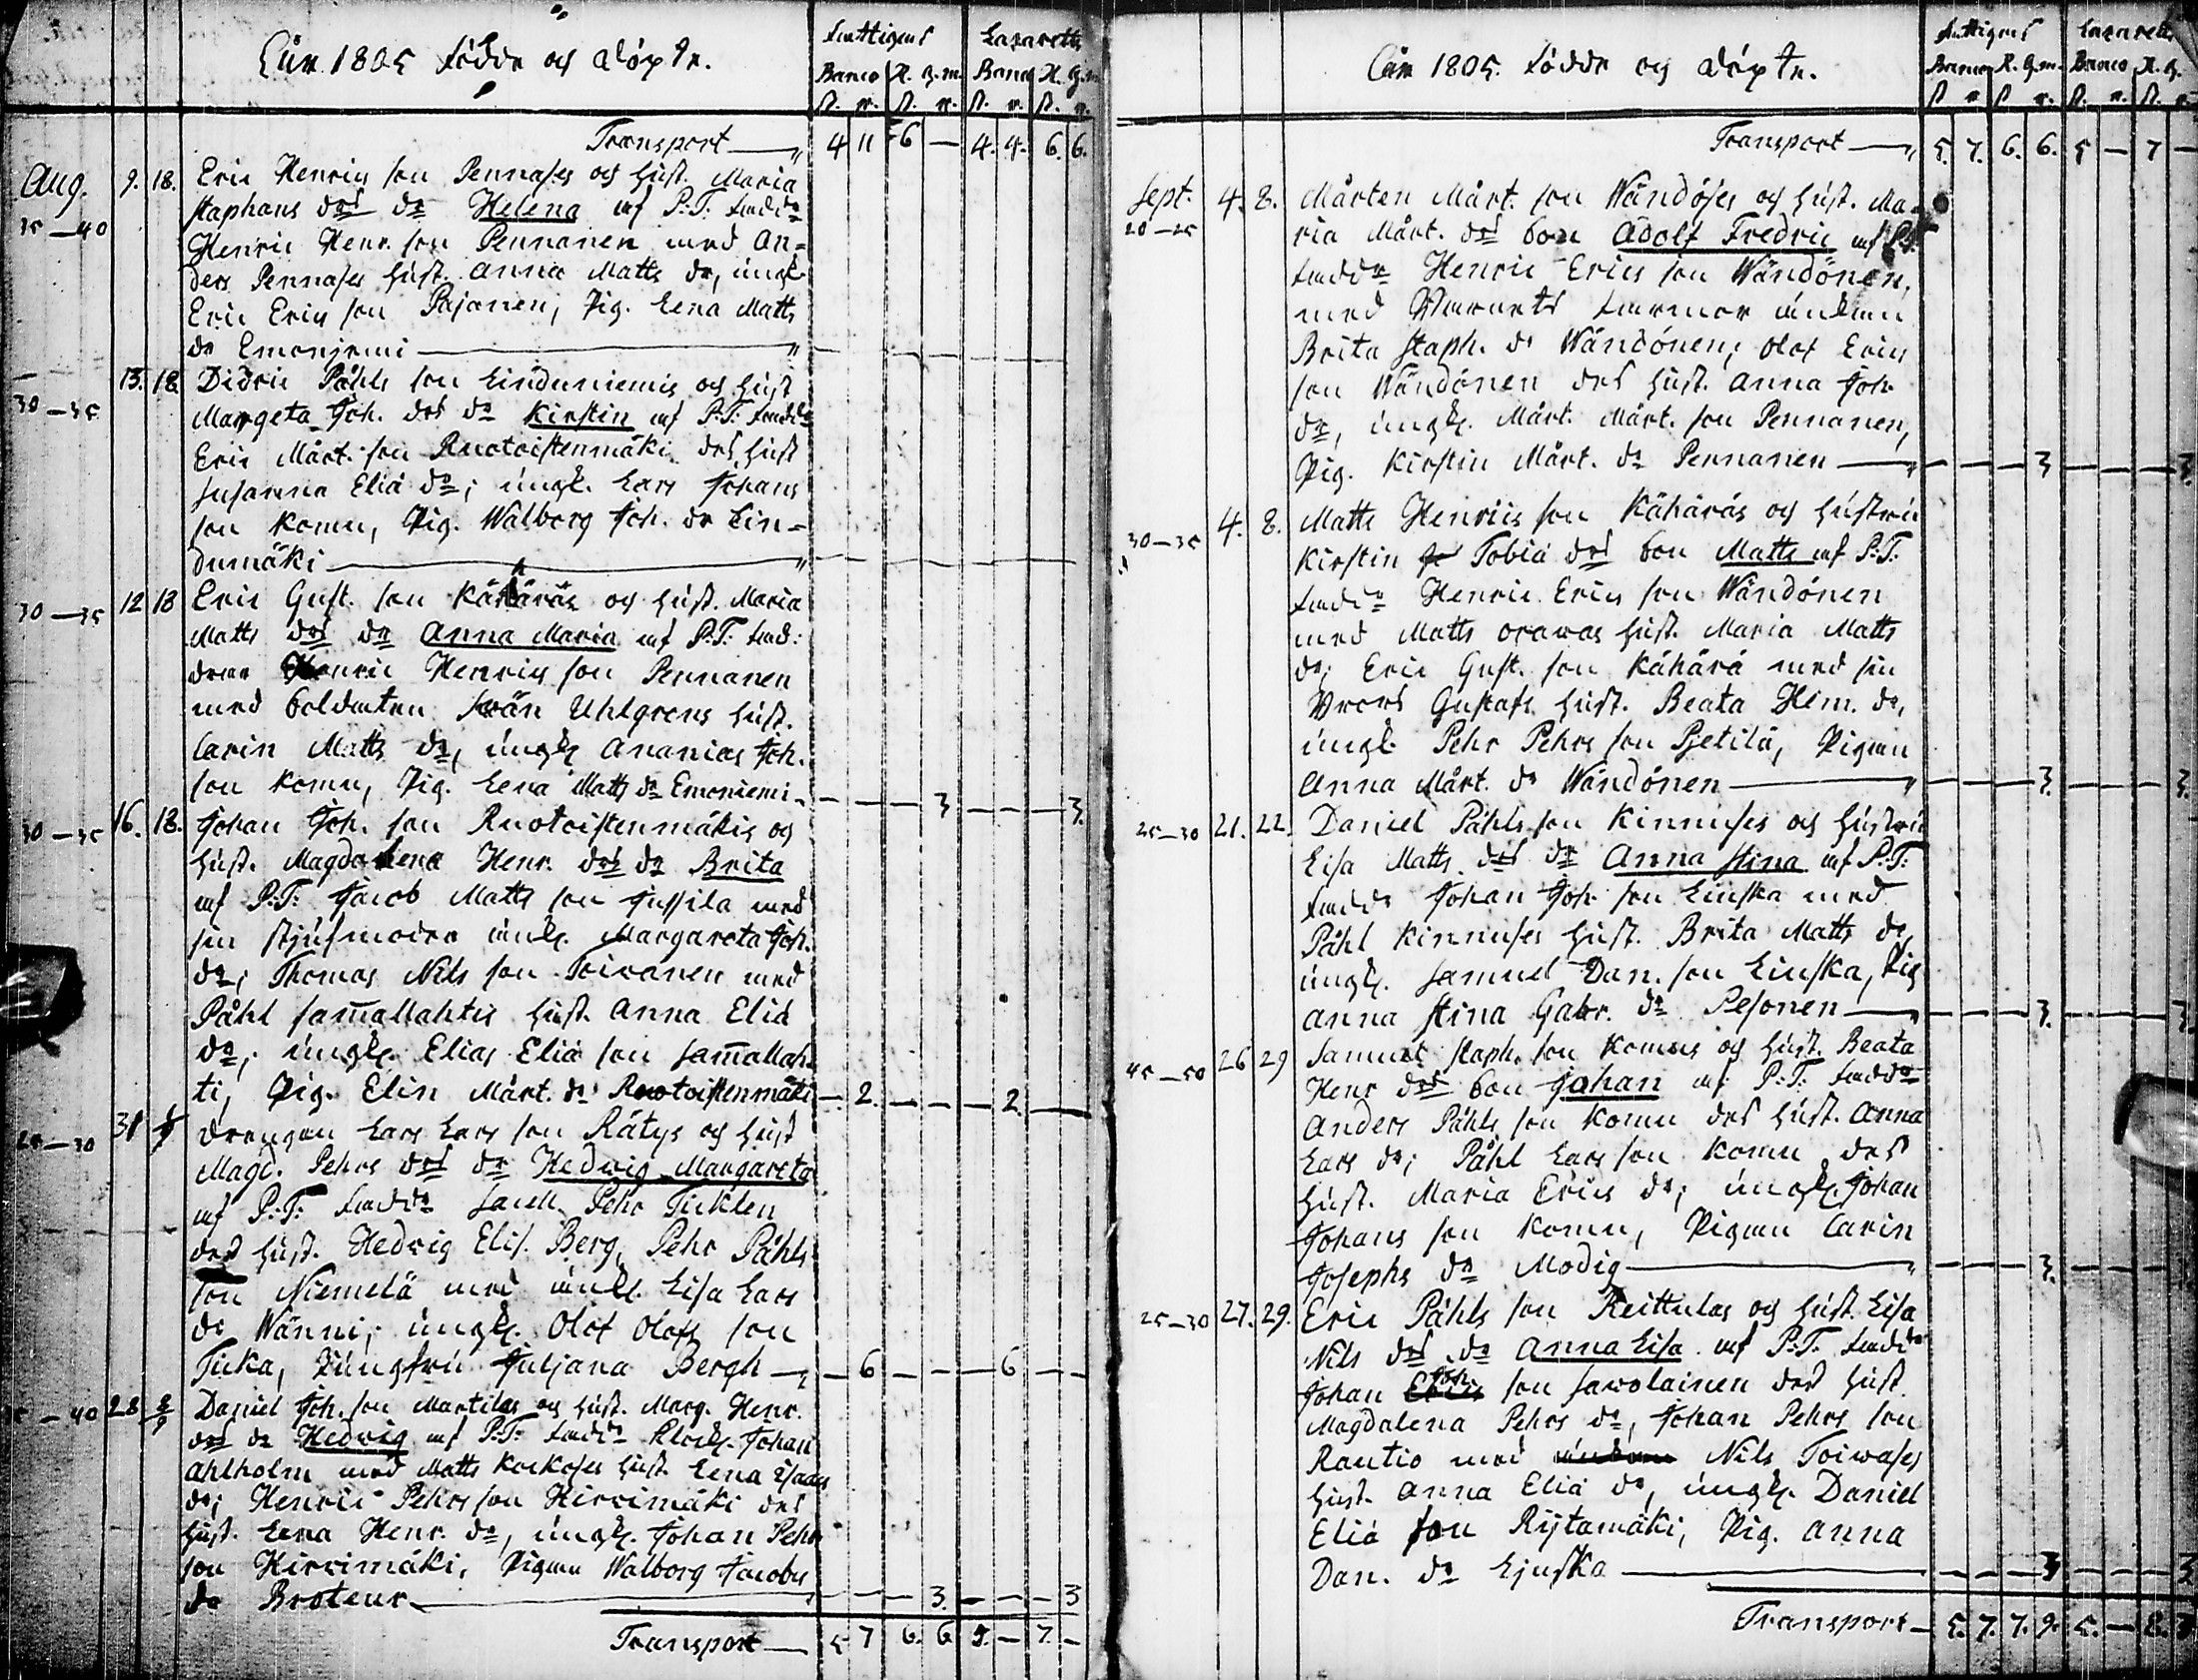 Åår 1805 födde og döpte.
Fattigas Lazarett
Banco R. g.m. Banco R. g.m.
ſl. r. ſl. r. ſl. r. ſl. r.
Transport — 4 11 6 — 4. 4. 6. 6.
Aug. 9. 18. Eric Henrics ſon Pennaſes og huſt. Maria
35—40 Staphans dotr dr Helena af P:T: fadd
Henric Henr. ſon Pennanen med An-
ders Pennaſes huſt. Anna Matts dr, ungk
Eric Erics ſon Pajanen, Pig. Lena Matts
dr Emoniemi
13. 18 Didric Påhls ſon Linduniemis og huſt
30—35 Margeta Joh. dotr dr Kirſtin af P:T: fadd
Eric Mårt. ſon Ruotoiſtenmäki des huſt
Suſanna Eliä dr; ungk. Lars Johans
ſon Komu, Pig. Walborg Joh. dr Lin-
dumäki
30—35 12 18 Eric Guſt. ſon Kähäräs og huſt. Maria
Matts dotr dr Anna Maria af P:T: fad:
drar Henric Henrics ſon Pennanen
med Soldaten Swän Uhlgrens huſt.
Carin Matts dr, ungk Ananias Joh.
ſon Komu, Pig. Lena Matts dr Emoniemi — — — 3 — — — 3.
30—35 16. 18. Johan Joh. ſon Ruotoiſtenmäkis og
huſt. Magdalena Henr. dotr dr Brita
af P:T: Jacob Matts ſon Juſſila med
ſin ſtjufmoder änk. Margareta Joh.
dr; Thomas Nils ſon Toivanen med
Påhl Sam̄allahtis huſt. Anna Eliä
dr, ungk. Elias Eliä ſon Sam̄allah-
ti, Pig. Elin Mårt. dr Ruotoiſtenmäki — 2. — — — 2. — —
25—30 31 Drengen Lars Lars ſon Rätys og huſt
Magd. Pehrs dotr dr Hedwig Margareta
af P:T: fadd Pehr Ticklen
des huſt. Hedvig Eliſ. Berg, Pehr Påhls
ſon Niemelä med änk. Liſa Lars
dr Wänni, ungk. Olof Olofs ſon
Tuka, Jungfru Juljana Bergh — 6 — — — 6 — —
— 40 28 8/9 Daniel Joh. ſon Martilas og huſt. Marg. Henr.
dotr dr Hedwig af P:T: fadd Klock. Johan
Ahlholm med Matts Kockoſes huſt Lena Iſaacs
dr; Henric Pehrs ſon Hirvimäki des
huſt. Lena Henr. dr, ungk. Johan Pehr
ſon Hirvimäki, Pigan Walborg Jacobs
dr Broteur — — — 3. — — — 3
Transport — 5 7 6. 6. 5. — 7. —
Åår 1805. födde og döpte.
Fattigas Lazarett
Banco R. g.m. Banco R. g.
ſl r. ſl r. ſl. r. ſl. r.
Transport — 5. 7. 6. 6. 5 — 7 —
Sept. 4. 8. Mårten Mårt. ſon Wändöſes og huſt. Ma-
20—25 ria Mårt. dotr Son Adolf Fredric af P:T:
fadd Henric Erics ſon Wändönen,
med farmor änkan
Brita Staph. dr Wändönen; Olof Erics
ſon Wändönen des huſt. Anna Joh
dr, ungk. Mårt. Mårt. ſon Pennanen,
Pig. Kirſtin Mårt. dr Pennanen — — — 3 — — — 3.
30—35 4. 8. Matts Henrics ſon Kähäräs og huſtru
Kirſtin Tobiä dotr Son Matts af P:T:
fadd Henric Erics ſon Wändönen
med Matts Orawas huſt. Maria Matts
dr; Eric Guſt. ſon Kähärä med ſin
Brors Guſtafs huſt. Beata Hem. dr,
ungk. Pehr Pehrs ſon Pjetilä, Pigan
Anna Mårt. dr Wändönen — — — 3. — — — 3.
25—30 21. 22. Daniel Påhls ſon Kinnuſes og huſtru
Liſa Matts dotr dr Anna Stina af P:T:
fadd Johan Joh ſon Liuſka med
Påhl Kinnuſes huſt. Brita Matts dr,
ungk. Samuel Dan. ſon Liuſka, Pig
Anna Stina Gabr. dr Peſonen — — — 3. — — — 3.
45—50 26 29 Samuel Staph. ſon Komus og huſt. Beata
Henr dotr Son Johan af P:T: fadd
Anders Påhls ſon Komu des huſt. Anna
Lars dr; Påhl Lars ſon Komu des
huſt. Maria Erics dr; ungk. Johan
Johans ſon Komu, Pigan Carin
Joſephs dr Modig — — — 3. — — —
25—30 27. 29. Eric Påhls ſon Reittulas og huſt. Liſa
Nils dotr dr Anna Liſa af P:T. fadd
Johan Joh. ſon Sawolainen des huſt
Magdalena Pehrs dr, Johan Pehrs ſon
Rautio med Nils Toiwaſes
huſt. Anna Eliä dr, ungk. Daniel
Eliä ſon Rytamäki, Pig. Anna
Dan. dr Ljuſka — — — 3 — — — 3
Transport — 5. 7. 7. 9. 5. — 8.